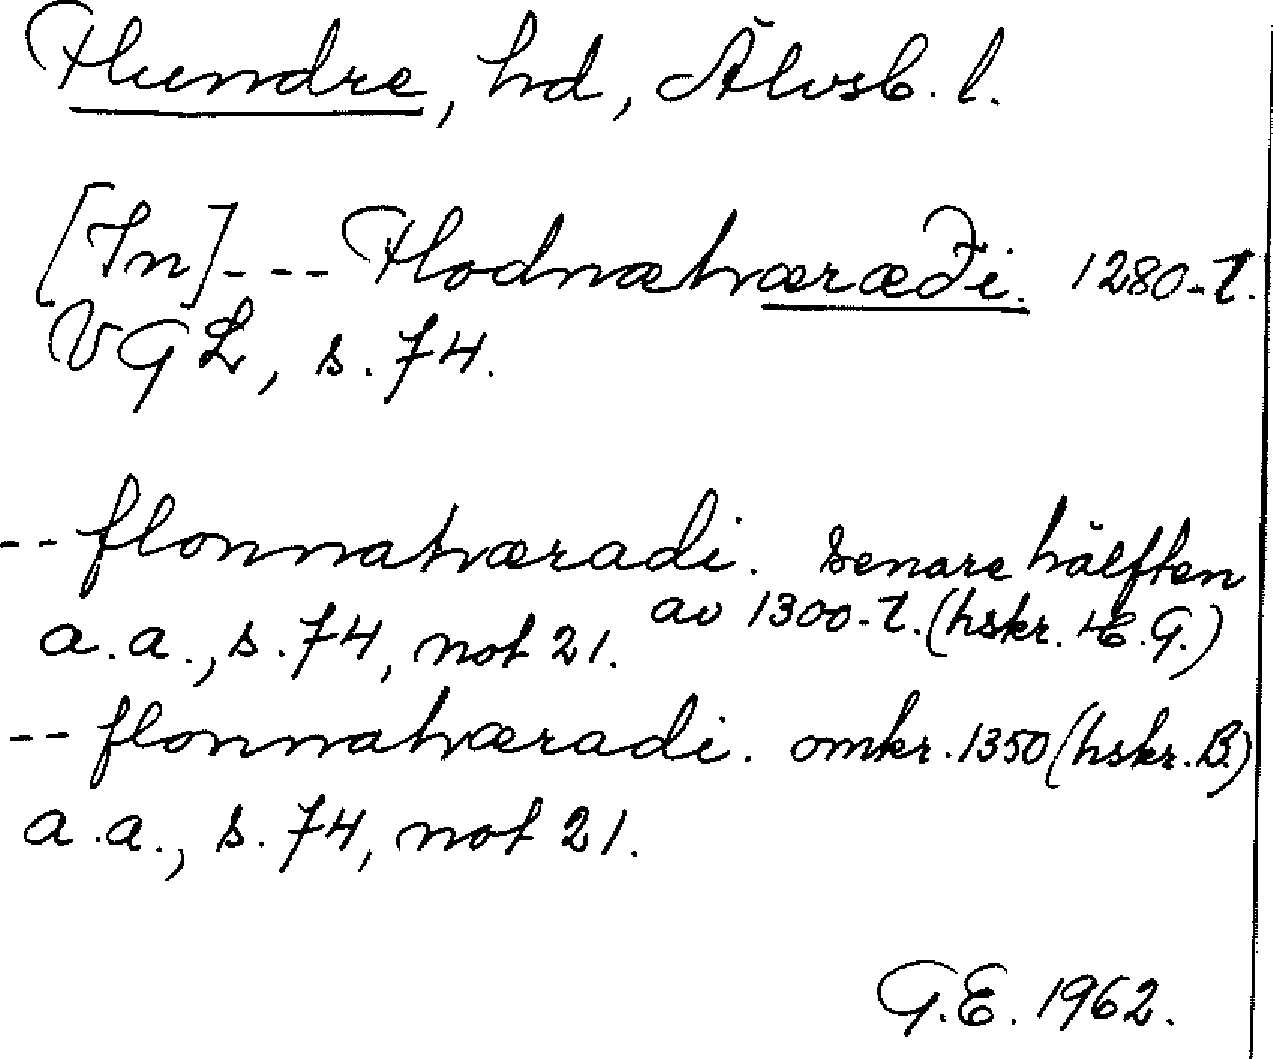 Flundre, hd, Älvsb. l.
[In]--- Flodnæhæræði. 1280-t.
VGL, s. 74.
-- flonnahæradi. senare hälften
av 1300-t. (hskr. E. G.)
a.a., s. 74, not 21.
-- flonnahæradi. omkr. 1350 (hskr. B.)
a.a., s. 74, not 21.
G.E. 1962.